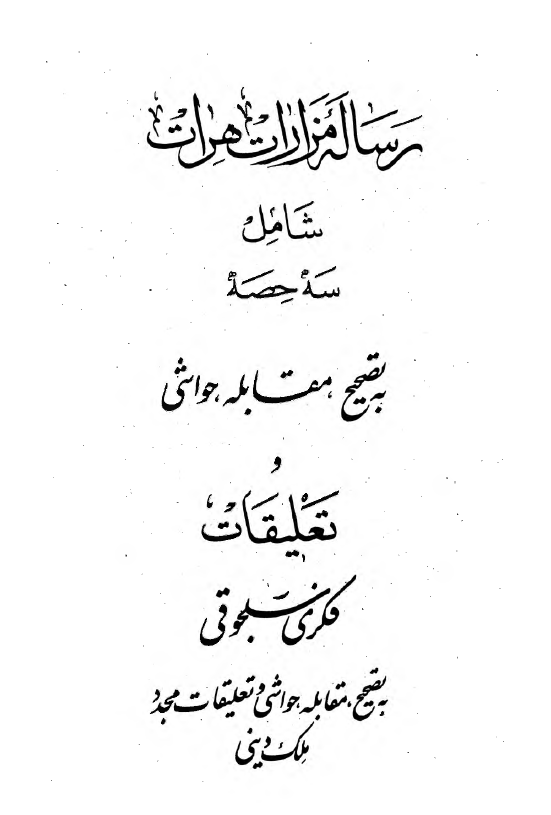 رسالهٔ مزارات هرات
شامل
سه حصه
به تصحیح، مقابله، حواشی
و
تعلیقات
فکری سلجوقی
به تصحیح، مقابله، حواشی و تعلیقات مجدد
ملک دینی